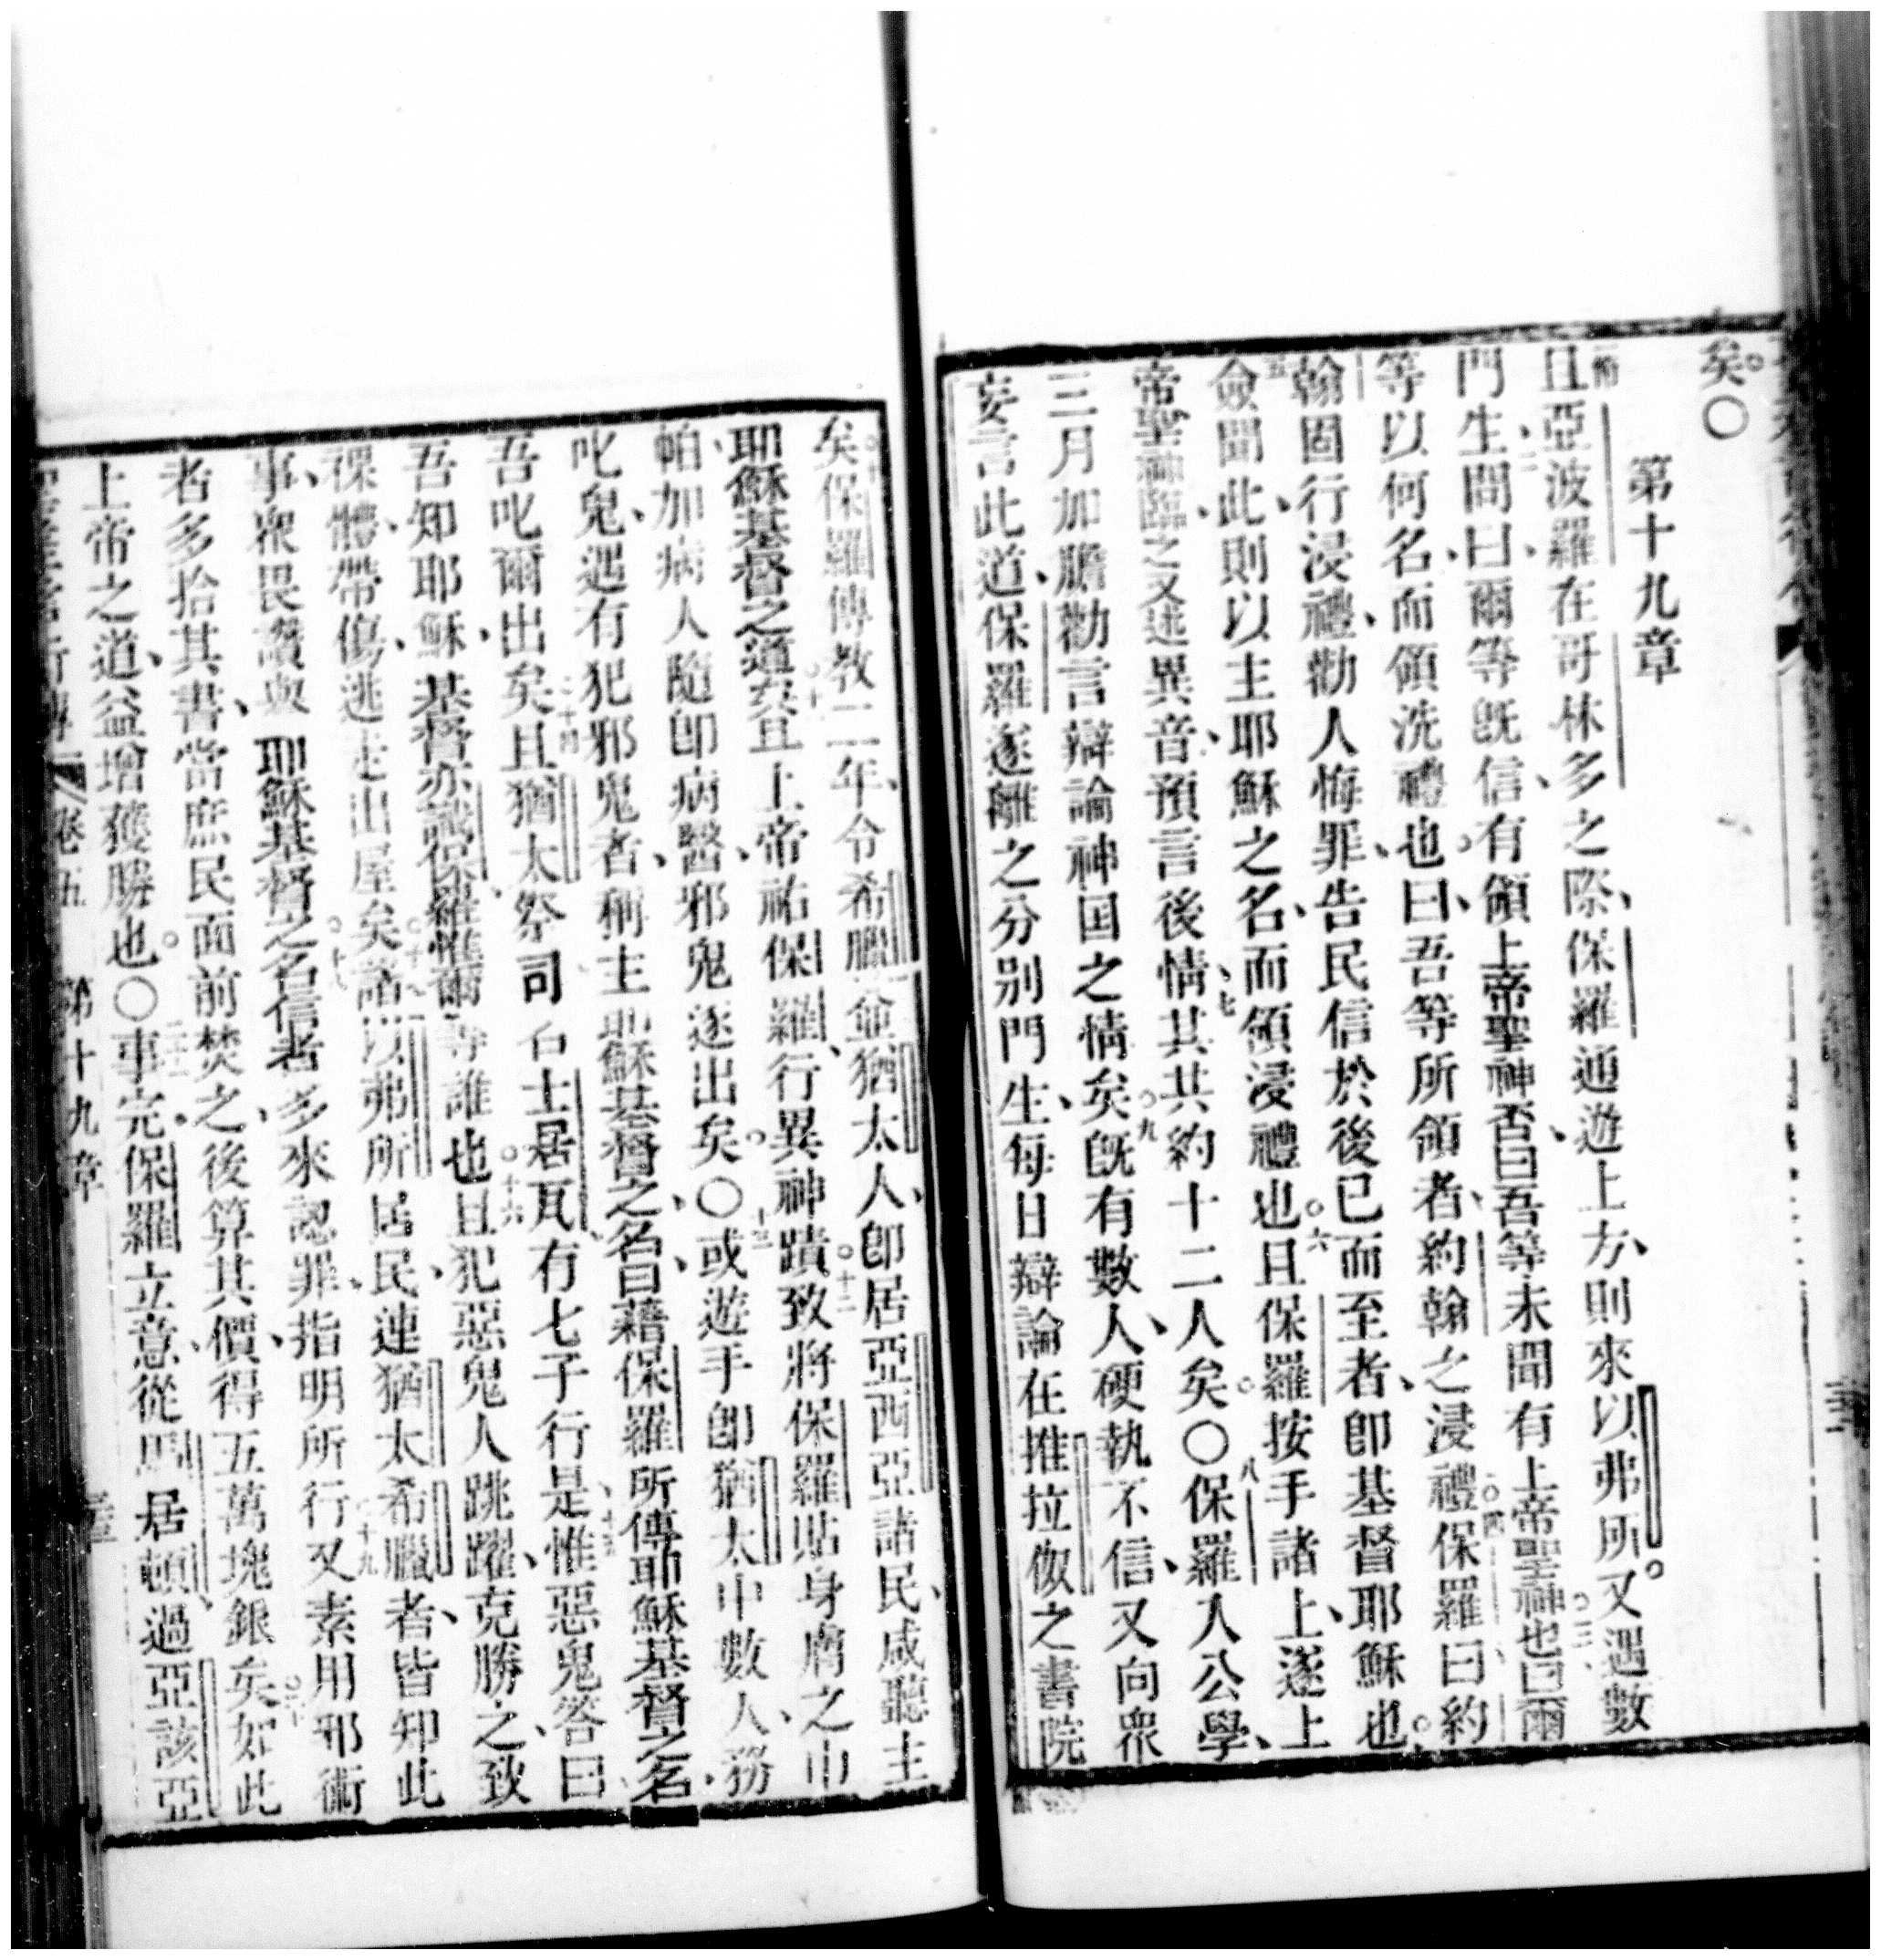 矣。〇
第十九章
且亞波羅在哥林多之際、保羅通遊上方、則來以弗所。又遇數
門生、問曰、爾等既信、有領上帝聖神否、曰吾等未聞有上帝聖神也。曰爾
等以何名、而領洗禮也。曰、吾等所領者、約翰之浸禮。保羅曰、約
翰固行浸禮、勸人悔罪、告民信於後己而至者、卽基督耶穌也。
僉聞此、則以主耶穌之名、而領浸禮也。且保羅按手諸上、遂上
帝聖神臨之、又述異音、預言後情、其共約十二人矣。〇保羅入公學、
三月加膽勸言辯論神国之情矣。旣有數人、硬執不信、又向眾
妄言此道、保羅遂離之、分别門生、每日辯論在推拉伮之書院
矣。保羅傳教二年、令希臘並猶太人、卽居亞西亞諸民、咸聽主
耶穌基督之道矣。且上帝祐保羅、行異神蹟。致將保羅貼身膚之巾
帕、加病人隨卽病醫、邪鬼逐出矣。〇或遊手卽猶太中數人、務
叱鬼、遇有犯邪鬼者、稱主耶穌基督之名、曰、藉保羅所傳耶穌基督之名、
吾叱爾出矣。且猶太祭司名士居瓦、有七子行是、惟惡鬼答曰、
吾知耶穌、基督亦識保羅、惟爾等誰也。且犯惡鬼人跳躍、克勝之、致
裸體、帶傷、逃走出屋矣。諸以弗所居民、連猶太希臘者、皆知此
事、衆畏讚與耶穌基督之名。信者多來認罪、指明所行。又素用邪術
者多拾其書、當庶民面前焚之、後算其價、得五萬塊銀矣。如此
上帝之道、益增獲勝也。〇事完、保羅立意、從馬居頓、過亞該亞
卷五 第十九章